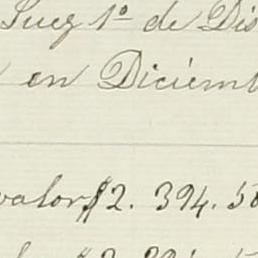 Juez 1º de Dis
en Diciemb
valor $2.394.50